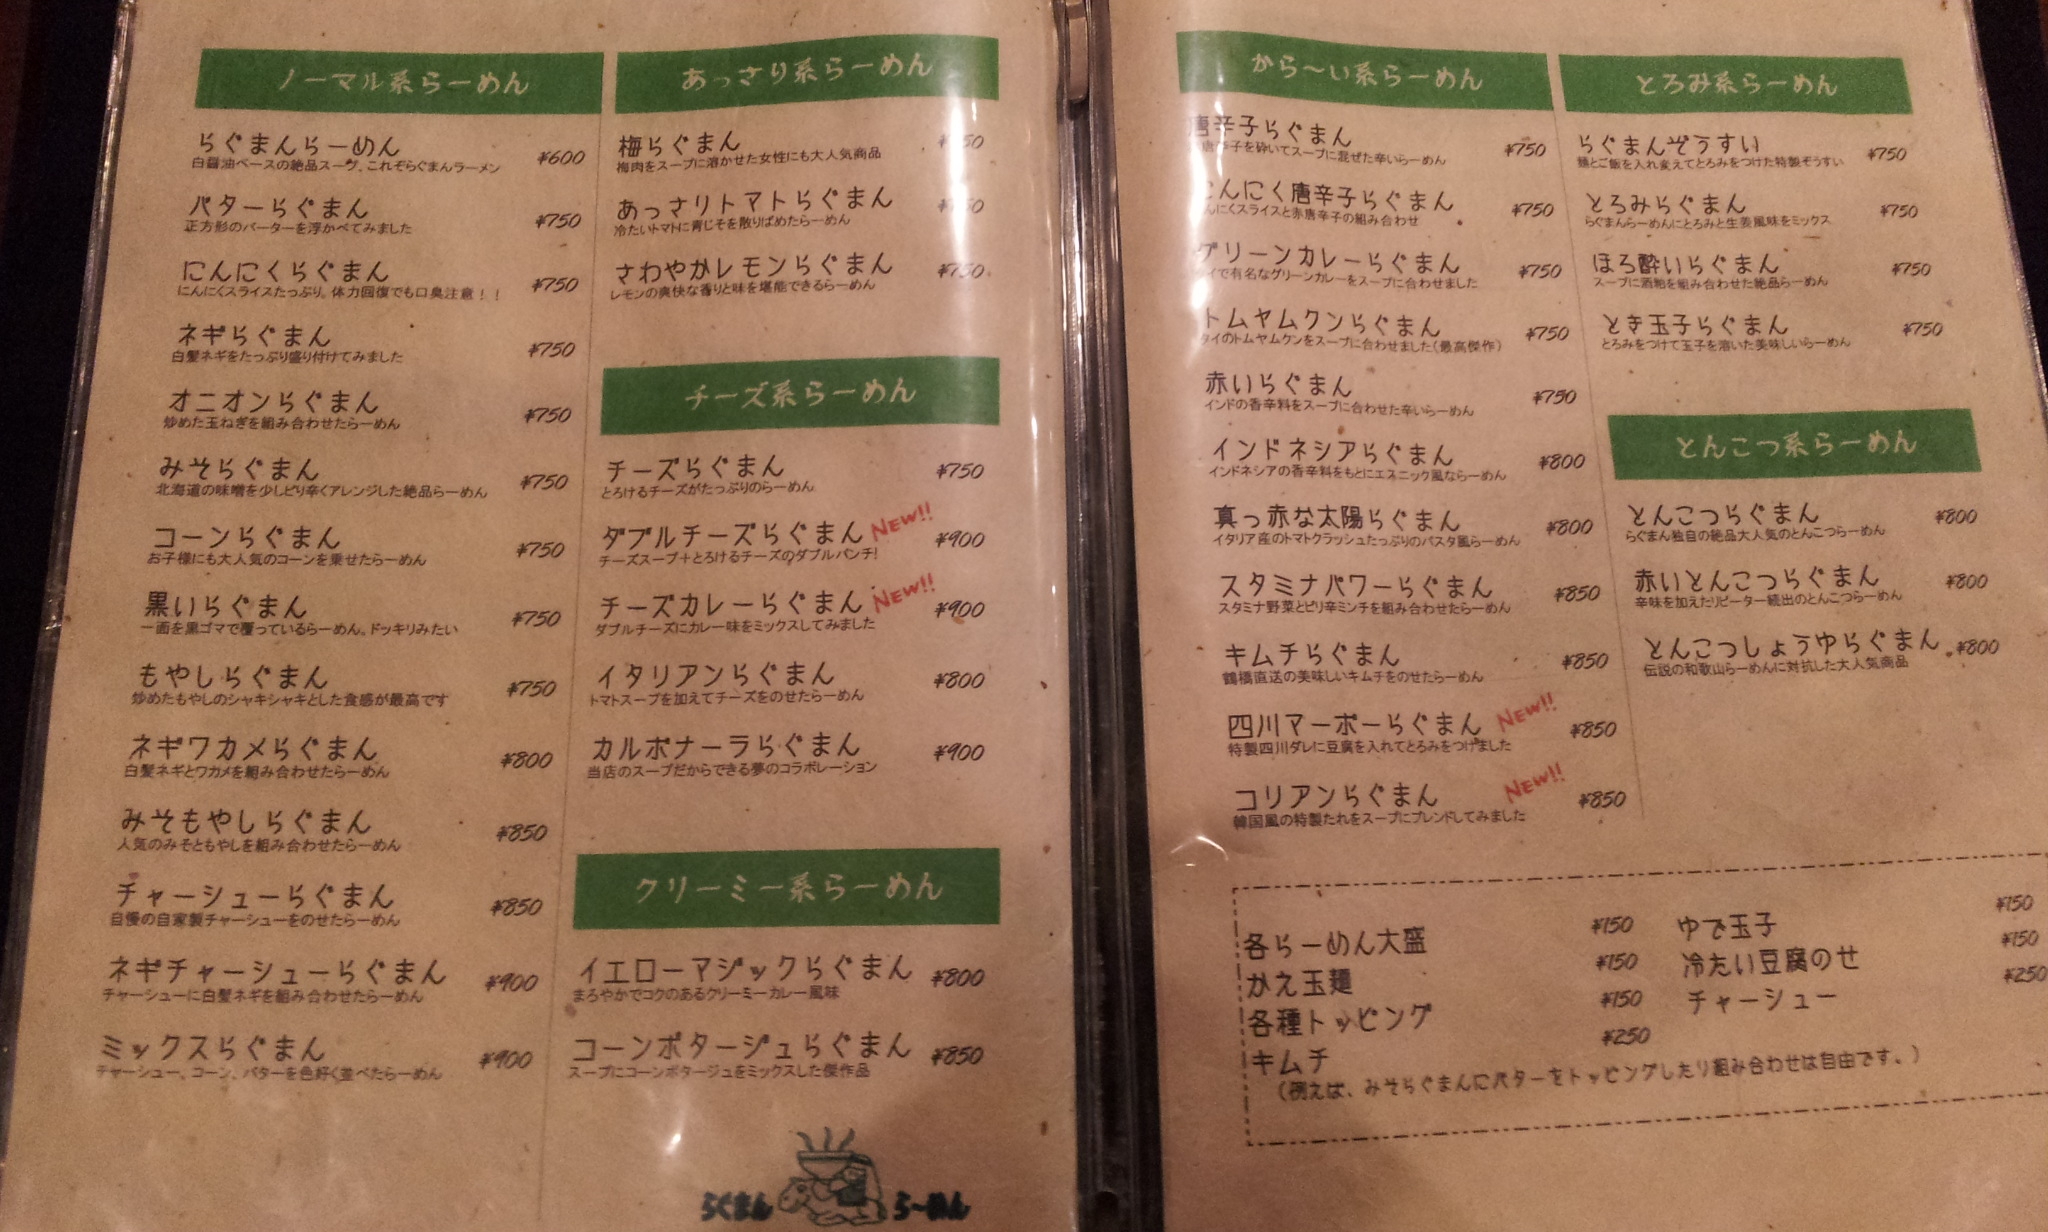 ノーマル系らーめん
らぐまんらーめん ¥600
白醤油ベースの絶品スープ、これぞらぐまんラーメン
バターらぐまん ¥750
正方形のバーターを浮かべてみました
にんにくらぐまん ¥750
にんにくスライスたっぷり。体力回復でも口臭注意！！
ネギらぐまん ¥750
白髪ネギをたっぷり盛り付けてみました
オニオンらぐまん ¥750
炒めた玉ねぎを組み合わせたらーめん
みそらぐまん ¥750
北海道の味噌を少しピリ辛くアレンジした絶品らーめん
コーンらぐまん ¥750
お子様にも大人気のコーンを乗せたらーめん
黒いらぐまん ¥750
一面を黒ゴマで覆っているらーめん。ドッキリみたい
もやしらぐまん ¥750
炒めたもやしのシャキシャキとした食感が最高です
ネギワカメらぐまん ¥800
白髪ネギとワカメを組み合わせたらーめん
みそもやしらぐまん ¥850
人気のみそともやしを組み合わせたらーめん
チャーシューらぐまん ¥850
自慢の自家製チャーシューをのせたらーめん
ネギチャーシューらぐまん ¥900
チャーシューに白髪ネギを組み合わせたらーめん
ミックスらぐまん ¥900
チャーシュー、コーン、バターを色好く並べたらーめん
あっさり系らーめん
梅らぐまん
梅肉をスープに溶かせた女性にも大人気商品
あっさりトマトらぐまん
冷たいトマトに青じそを散りばめたらーめん
さわやかレモンらぐまん ¥750
レモンの爽快な香りと味を堪能できるらーめん
チーズ系らーめん
チーズらぐまん ¥750
とろけるチーズがたっぷりのらーめん
ダブルチーズらぐまん NEW!! ¥900
チーズスープ+とろけるチーズのダブルパンチ!
チーズカレーらぐまん NEW!! ¥900
ダブルチーズにカレー味をミックスしてみました
イタリアンらぐまん ¥800
トマトスープを加えてチーズをのせたらーめん
カルボナーララぐまん ¥900
当店のスープだからできる夢のコラボレーション
クリーミー系らーめん
イエローマジックらぐまん ¥800
まろやかでコクのあるクリーミーカレー風味
コーンポタージュらぐまん ¥850
スープにコーンポタージュをミックスした傑作品
らぐまん らーめん
から～い系らーめん
唐辛子らぐまん ¥750
唐辛子を砕いてスープに混ぜた辛いらーめん
にんにく唐辛子らぐまん ¥750
にんにくスライスと赤唐辛子の組み合わせ
グリーンカレーらぐまん ¥750
タイで有名なグリーンカレーをスープに合わせました
トムヤムクンらぐまん ¥750
タイのトムヤムクンをスープに合わせました(最高傑作)
赤いらぐまん ¥750
インドの香辛料をスープに合わせた辛いらーめん
インドネシアらぐまん ¥800
インドネシアの香辛料をもとにエスニック風ならーめん
真っ赤な太陽らぐまん ¥800
イタリア産のトマトクラッシュたっぷりのパスタ風らーめん
スタミナパワーらぐまん ¥850
スタミナ野菜とピリ辛ミンチを組み合わせたらーめん
キムチらぐまん ¥850
鶴橋直送の美味しいキムチをのせたらーめん
四川マーボーらぐまん NEW!! ¥850
特製四川ダレに豆腐を入れてとろみをつけました
コリアンらぐまん NEW!! ¥850
韓国風の特製たれをスープにブレンドしてみました
とろみ系らーめん
らぐまんぞうすい ¥750
麺とご飯を入れ変えてとろみをつけた特製ぞうすい
とろみらぐまん ¥750
らぐまんらーめんにとろみと生姜風味をミックス
ほろ酔いらぐまん ¥750
スープに酒粕を組み合わせた絶品らーめん
とき玉子らぐまん ¥750
とろみをつけて玉子を溶いた美味しいらーめん
とんこつ系らーめん
とんこつらぐまん ¥800
らぐまん独自の絶品大人気のとんこつらーめん
赤いとんこつらぐまん ¥800
辛味を加えたリピーター続出のとんこつらーめん
とんこつしょうゆらぐまん ¥800
伝説の和歌山らーめんに対抗した大人気商品
各らーめん大盛 ¥150
かえ玉麺 ¥150
各種トッピング ¥150
キムチ ¥250
ゆで玉子 ¥150
冷たい豆腐のせ ¥150
チャーシュー ¥250
(例えば、みそらぐまんにバターをトッピングしたり組み合わせは自由です。)